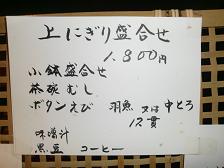 上にぎり盛合せ
1.800円
小鉢盛合せ
茶碗むし
ボタンえび 羽魚 又は中とろ
12貫
味噌汁
黒豆 コーヒー